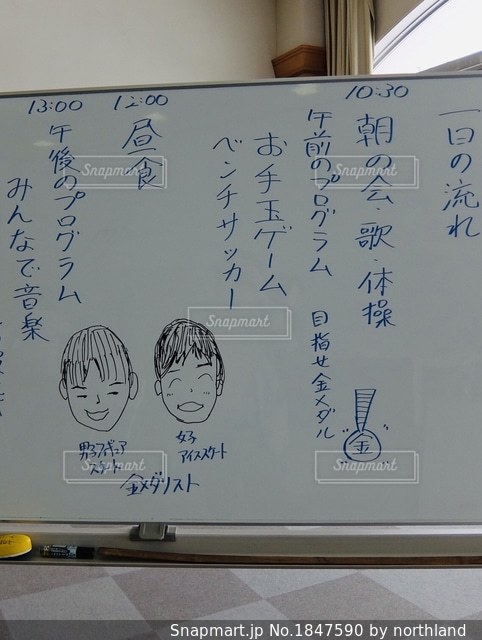 一日の流れ
10:30
朝の会・歌・体操
午前のプログラム 目指せ金メダル
金
お手玉ゲーム
ベンチサッカー
12:00
昼食
13:00
午後のプログラム
みんなで音楽
女子
アイススケート
男子フィギュア
スケート
金メダリスト
Snapmart
Snapmart
Snapmart
Snapmart
Snapmart
Snapmart.jp No.1847590 by northland